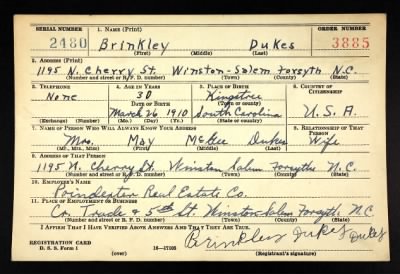 SERIAL NUMBER 1. NAME (Print) ORDER NUMBER
2480 Brinkley Dukes 3885
(First) (Middle) (Last)
2. ADDRESS (Print)
1195 N. Cherry St. Winston-Salem Forsyth N.C.
(Number and street or R. F. D. number) (Town) (County) (State)
3. TELEPHONE 4. AGE IN YEARS 5. PLACE OF BIRTH 6. COUNTRY OF CITIZENSHIP
None 30 Kingstree
DATE OF BIRTH (Town or county)
March 26 1910 South Carolina U.S.A.
(Exchange) (Number) (Mo.) (Day) (Yr.) (State or country)
7. NAME OF PERSON WHO WILL ALWAYS KNOW YOUR ADDRESS 8. RELATIONSHIP OF THAT PERSON
Mrs. May McGee Dukes Wife
(Mr., Mrs., Miss) (First) (Middle) (Last)
9. ADDRESS OF THAT PERSON
1195 N. Cherry St. Winston Salem Forsythe N.C.
(Number and street or R. F. D. number) (Town) (County) (State)
10. EMPLOYER'S NAME
Poindexter Real Estate Co.
11. PLACE OF EMPLOYMENT OR BUSINESS
Cr. Trade & 5th St. Winston Salem Forsyth N.C.
(Number and street or R. F. D. number) (Town) (County) (State)
I AFFIRM THAT I HAVE VERIFIED ABOVE ANSWERS AND THAT THEY ARE TRUE.
Brinkley Dukes Dukes
REGISTRATION CARD
D. S. S. Form 1 16—17105 (over) (Registrant's signature)